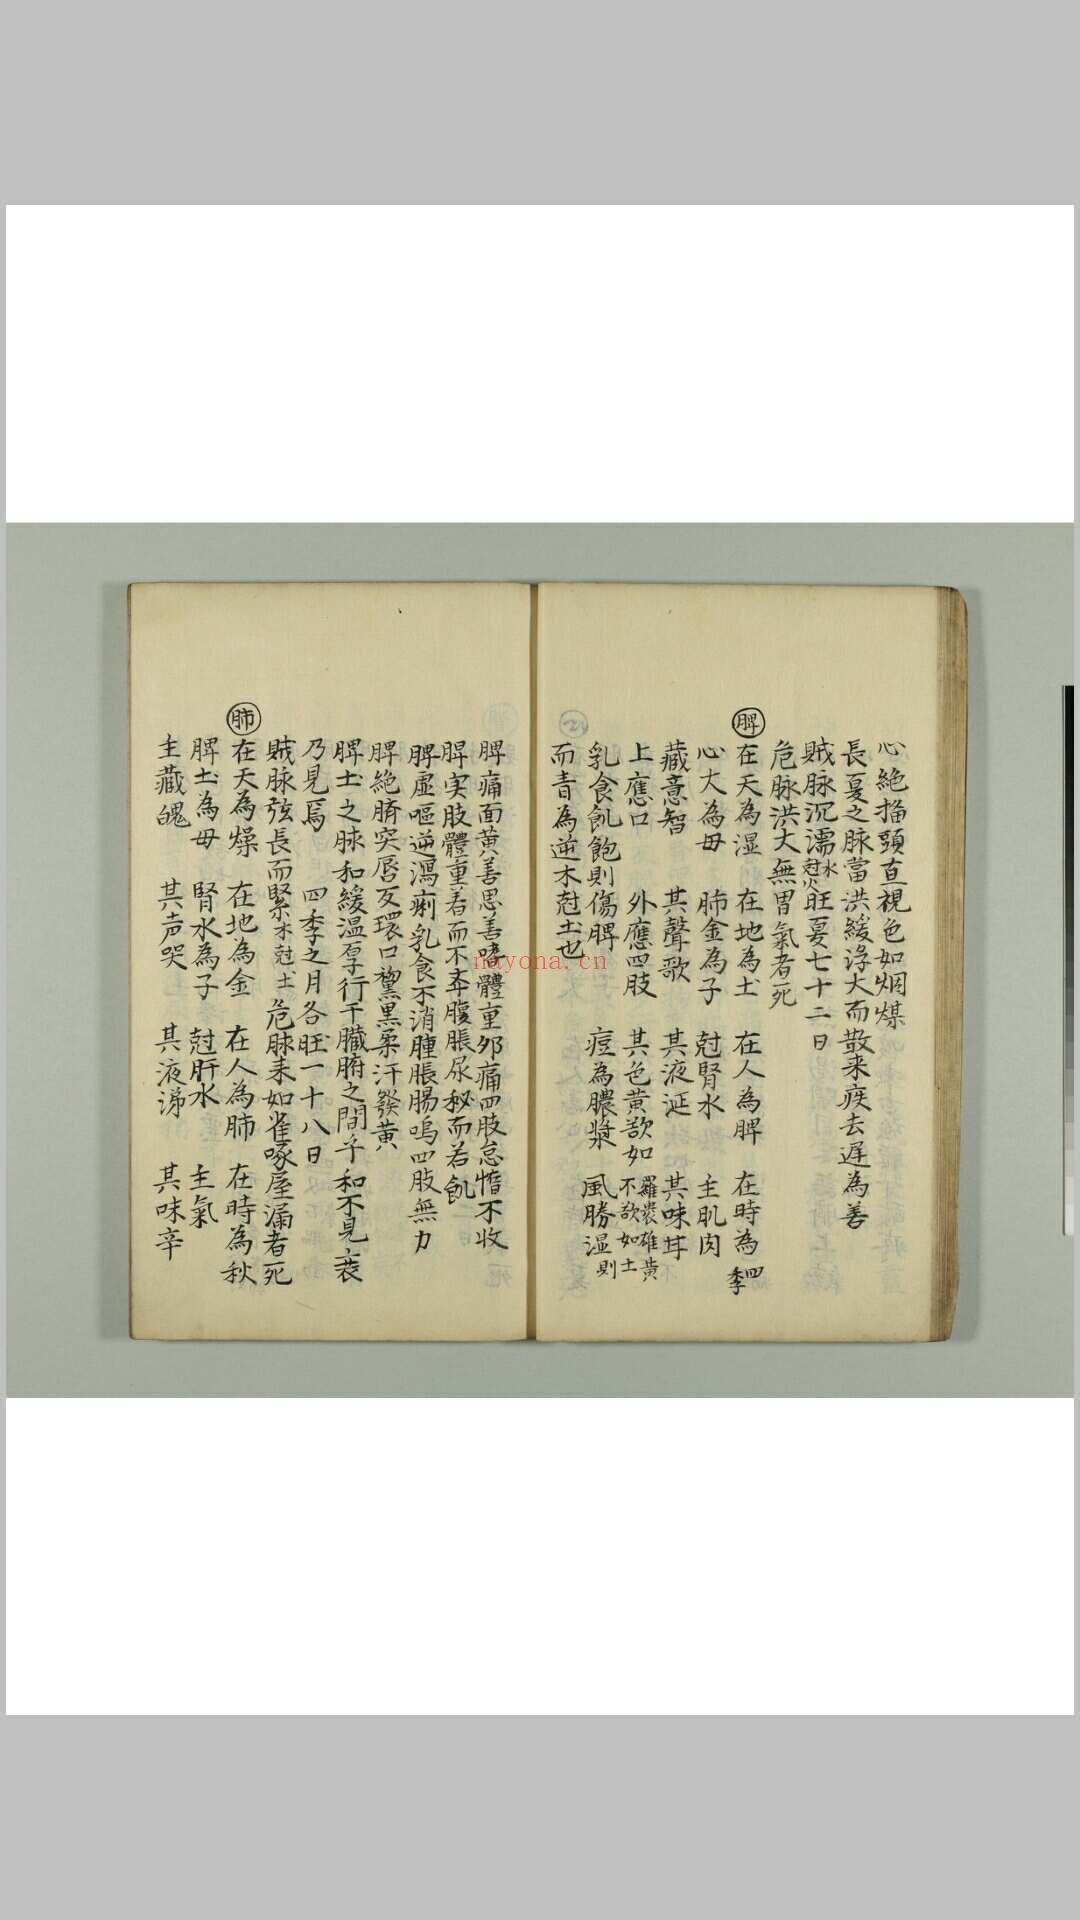 心絶擂頭直視色如烟煤
長夏之脉當洪緩浮大而散来疾去遅為善
賊脉沉濡水尅火旺夏七十二日
危脉洪大無胃氣者死
脾
在天為湿　在地為土　在人為脾　在時為四季
心大為毋　肺金為子　尅腎水　主肌肉
藏意智　其聲歌　其液涎　其味甘
上應口　外應四肢　其色黄欲如羅裳雄黄不欲如土
乳食飢飽則傷脾　痘為膿漿　風勝湿則
而青為逆木尅土也
脾痛面黄善思善嗜體重卯痛四肢怠惰不收
脾实肢體重着而不奔腹脹尿秘而若飢
脾虚嘔逆瀉痢乳食不消腫脹腸鳴四肢無力
脾絶臍突唇反環口黧黒柔汗發黄
脾土之脉和緩温厚行干臓腑之間乎和不見衰
乃見焉　四季之月各旺一十八日
賊脉弦長而緊木尅土危脉来如雀啄屋漏者死
肺
在天為燥　在地為金　在人為肺　在時為秋
脾土為毋　腎水為子　尅肝水　主氣
主藏魄　其声哭　其液涕　其味辛
nayona.cn